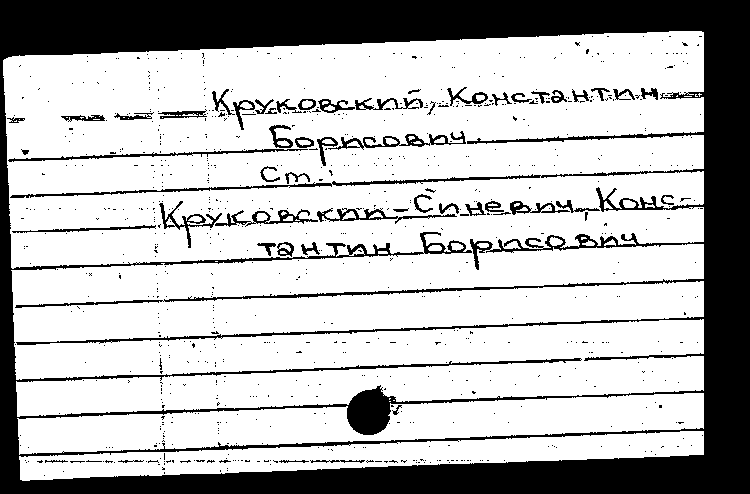 Круковский, Константин
Борисович.
Ст.:
Круковский-Синевич, Конс-
тантин Борисович